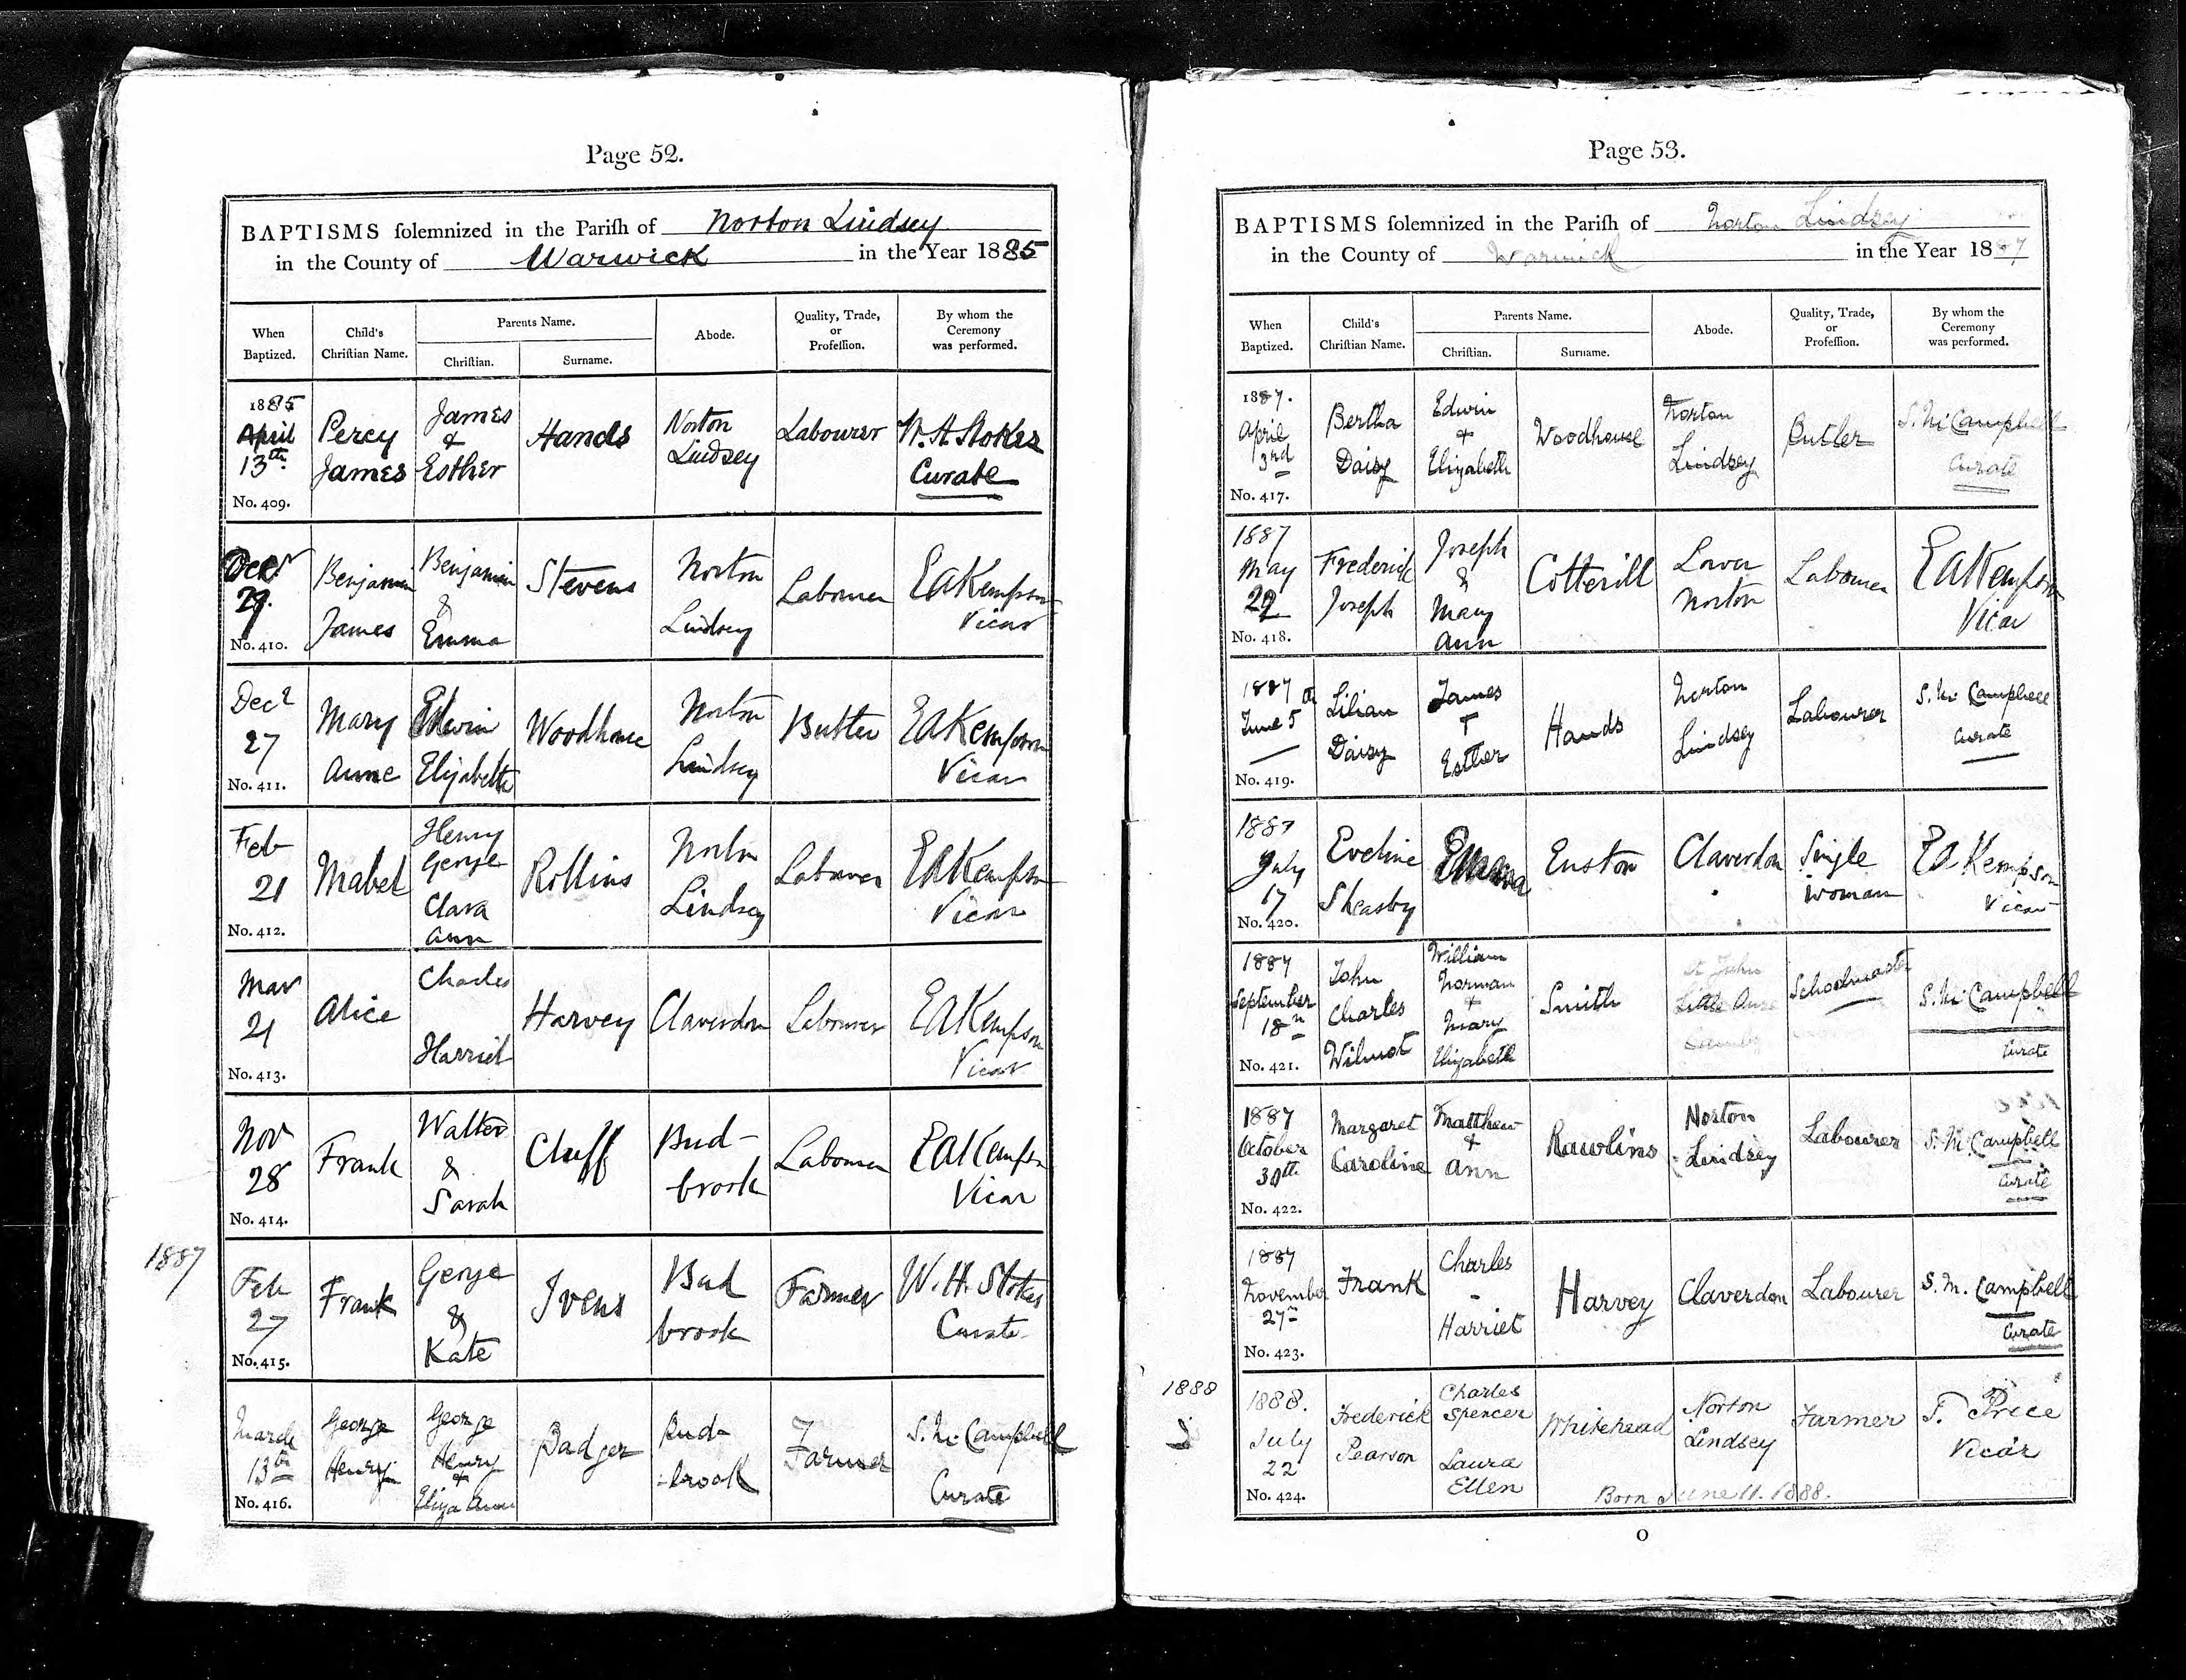 Page 52.
BAPTISMS solemnized in the Parish of Norton Lindsey
in the County of Warwick in the Year 1885
When Baptized.
Child's Christian Name.
Parents Name.
Christian.
Surname.
Abode.
Quality, Trade, or Profession.
By whom the Ceremony was performed.
1885 April 13th. No. 409.
Percy James
James & Esther
Hands
Norton Lindsey
Labourer
W. H. Stokes Curate
Decr 29. No. 410.
Benjamin James
Benjamin & Emma
Stevens
Norton Lindsey
Labourer
EAKempson Vicar
Decr 27 No. 411.
Mary Anne
Edwin Elizabeth
Woodhouse
Norton Lindsey
Butler
EAKempson Vicar
Feb 21 No. 412.
Mabel
Henry George Clara Ann
Rollins
Norton Lindsey
Labourer
EAKempson Vicar
Mar 21 No. 413.
Alice
Charles Harriet
Harvey
Claverdon
Labourer
EAKempson Vicar
Nov 28 No. 414.
Frank
Walter & Sarah
Cluff
Bud-brook
Labourer
EAKempson Vicar
1887
Feb 27 No. 415.
Frank
George & Kate
Ivens
Bud brook
Farmer
W. H. Stokes Curate
March 13th No. 416.
George Henry
George Henry + Eliza Ann
Badger
Bud-brook
Farmer
S. Mc Campbell Curate
Page 53.
BAPTISMS solemnized in the Parish of Norton Lindsey
in the County of Warwick in the Year 1887
When Baptized.
Child's Christian Name.
Parents Name.
Christian.
Surname.
Abode.
Quality, Trade, or Profession.
By whom the Ceremony was performed.
1887. April 3rd No. 417.
Bertha Daisy
Edwin + Elizabeth
Woodhouse
Norton Lindsey
Butler
S. Mc Campbell Curate
1887 May 29 No. 418.
Frederick Joseph
Joseph & Mary Ann
Cotterill
Lower Norton
Labourer
EAKempson Vicar
1887 June 5th No. 419.
Lilian Daisy
James + Esther
Hands
Norton Lindsey
Labourer
S. Mc Campbell Curate
1887 July 17 No. 420.
Eveline Sheasby
Emma
Euston
Claverdon
Single Woman
EAKempson Vicar
1887 September 18th No. 421.
John Charles Wilmot
William Norman + Mary Elizabeth
Smith
St John Little
Schoolmaster
S. Mc Campbell Curate
1887 October 30th No. 422.
Margaret Caroline
Matthew + Ann
Rawlins
Norton Lindsey
Labourer
S. Mc. Campbell Curate
1887 November 27th No. 423.
Frank
Charles - Harriet
Harvey
Claverdon
Labourer
S. M. Campbell Curate
1888
1888. July 22 No. 424.
Frederick Pearson
Charles Spencer Laura Ellen
Whitehead
Norton Lindsey
Farmer
T. Price Vicar
Born June 11. 1888.
O